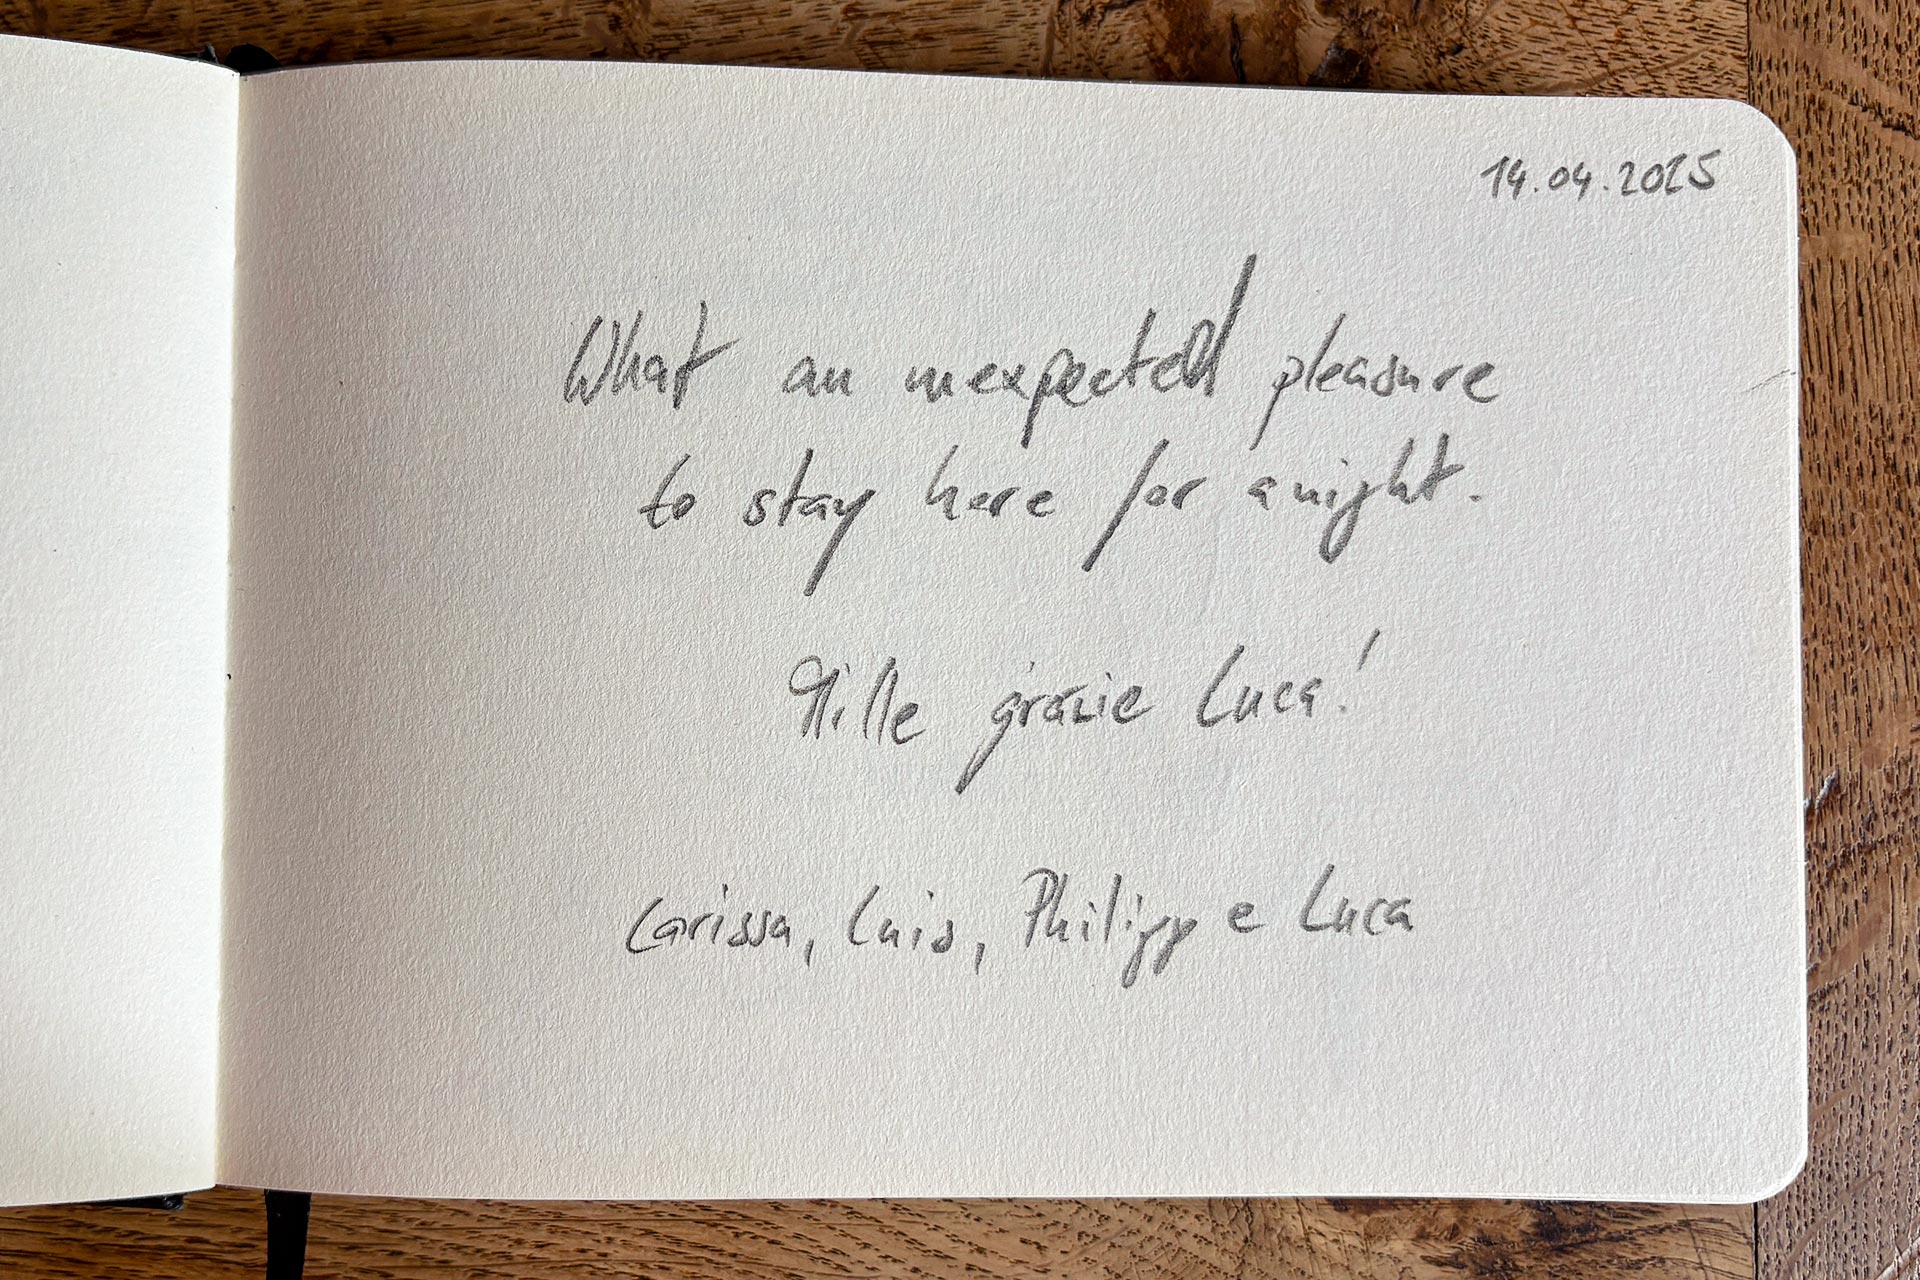 14.04.2025
What an unexpected pleasure
to stay here for a night.
Mille grazie Luca!
Larissa, Luis, Philipp e Luca